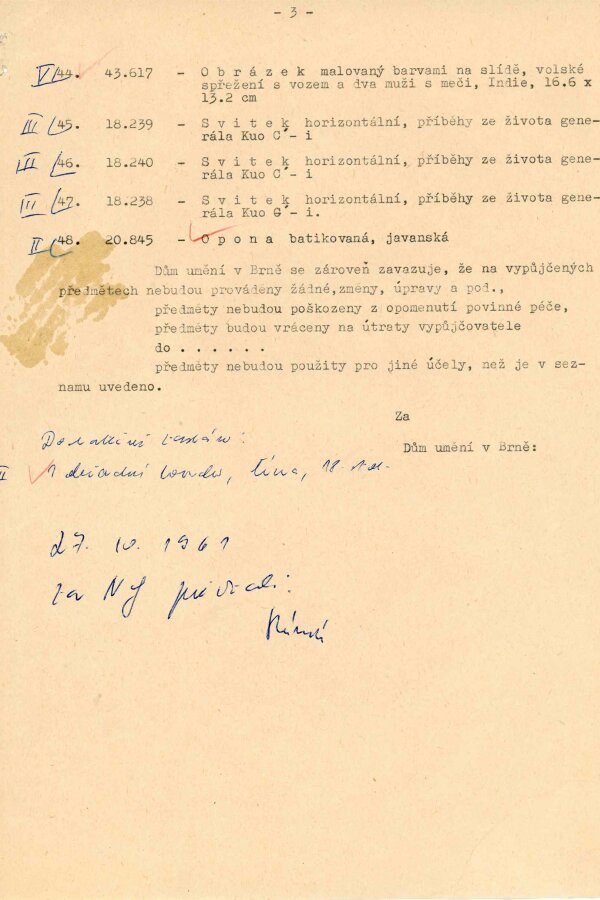 - 3 -
V 44. 43.617 - O b r á z e k malovaný barvami na slídě, volské
spřežení s vozem a dva muži s meči, Indie, 16.6 x
13.2 cm
III 45. 18.239 - S v i t e k horizontální, příběhy ze života gene-
rála Kuo C´- i
III 46. 18.240 - S v i t e k horizontální, příběhy ze života gene-
rála Kuo C´- i
III 47. 18.238 - S v i t e k horizontální, příběhy ze života gene-
rála Kuo G´- i.
II 48. 20.845 - O p o n a batikovaná, javanská
Dům umění v Brně se zároveň zavazuje, že na vypůjčených
předmětech nebudou prováděny žádné,změny, úpravy a pod.,
předměty nebudou poškozeny z opomenutí povinné péče,
předměty budou vráceny na útraty vypůjčovatele
do . . . . . .
předměty nebudou použity pro jiné účely, než je v sez-
namu uvedeno.
Za
Dům umění v Brně:
II 1 Čína, 18. stol.
27. 10. 1961
za NG